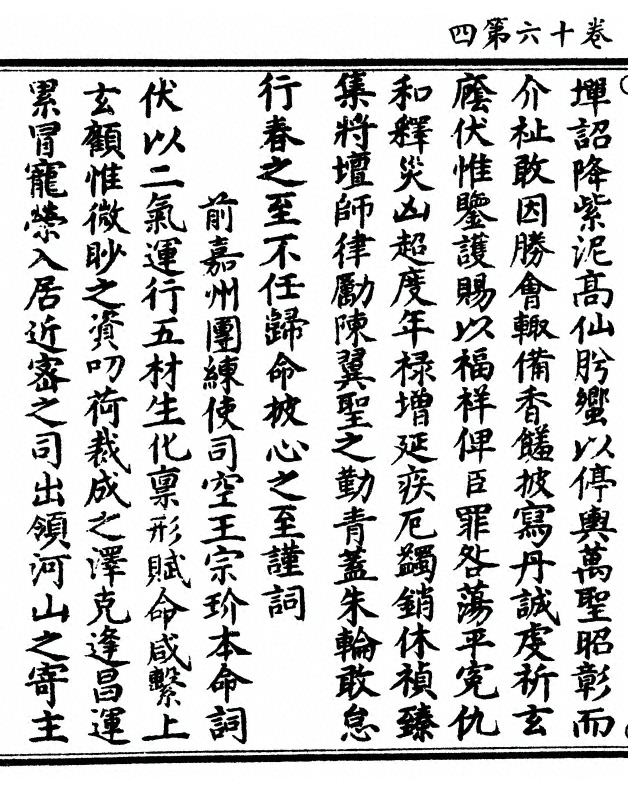 卷十六第四
墠詔降紫泥高仙肸蠁以停輿萬聖昭彰而
介祉敢因勝會輙備香饈披寫丹誠虔祈玄
廕伏惟鑒護賜以福祥俾臣罪咎蕩平寃仇
和釋災凶超度年祿增延疾厄蠲銷休禎臻
集將壇師律勵陳翼聖之勤青蓋朱輪敢怠
行春之至不任歸命披心之至謹詞
前嘉州團練使司空王宗玠本命詞
伏以二氣運行五材生化禀形賦命咸繫上
玄顧惟微眇之資叨荷裁成之澤克逢昌運
累冐寵榮入居近密之司出領河山之寄主